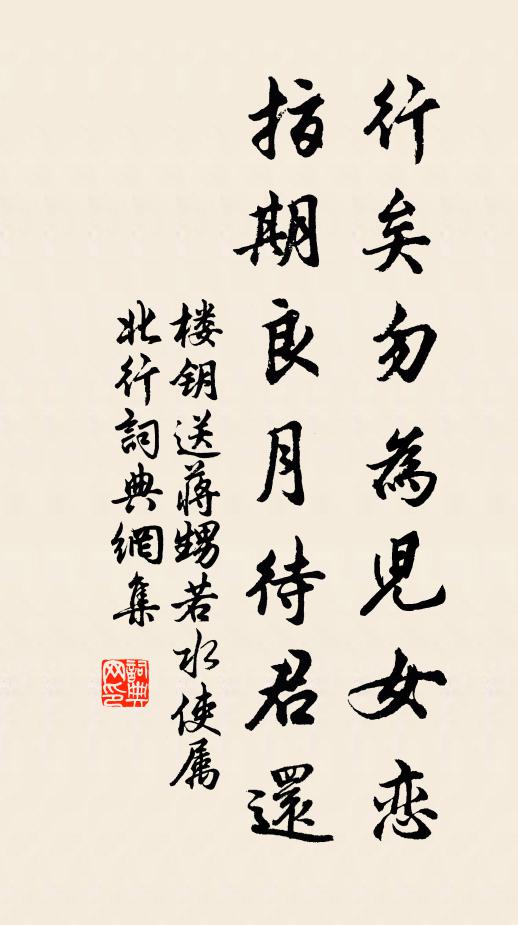 行矣勿為児女恋
指期良月待君還
楼钥送蒋甥若水使属
北行詞典網集
詞典
网印